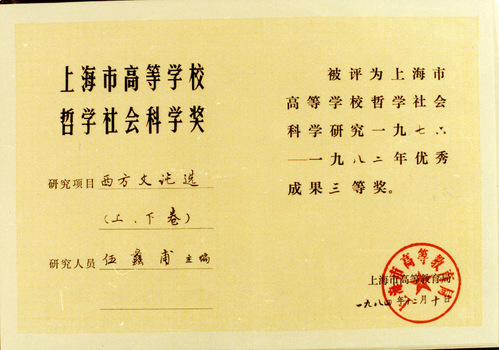 上海市高等学校
哲学社会科学奖
研究项目 西方文论选
(上、下卷)
研究人员 伍蠡甫 主编
被评为上海市
高等学校哲学社会
科学研究一九七六
—一九八二年优秀
成果三等奖。
上海市高等教育局
一九八四年十二月十日
上海市高等教育局